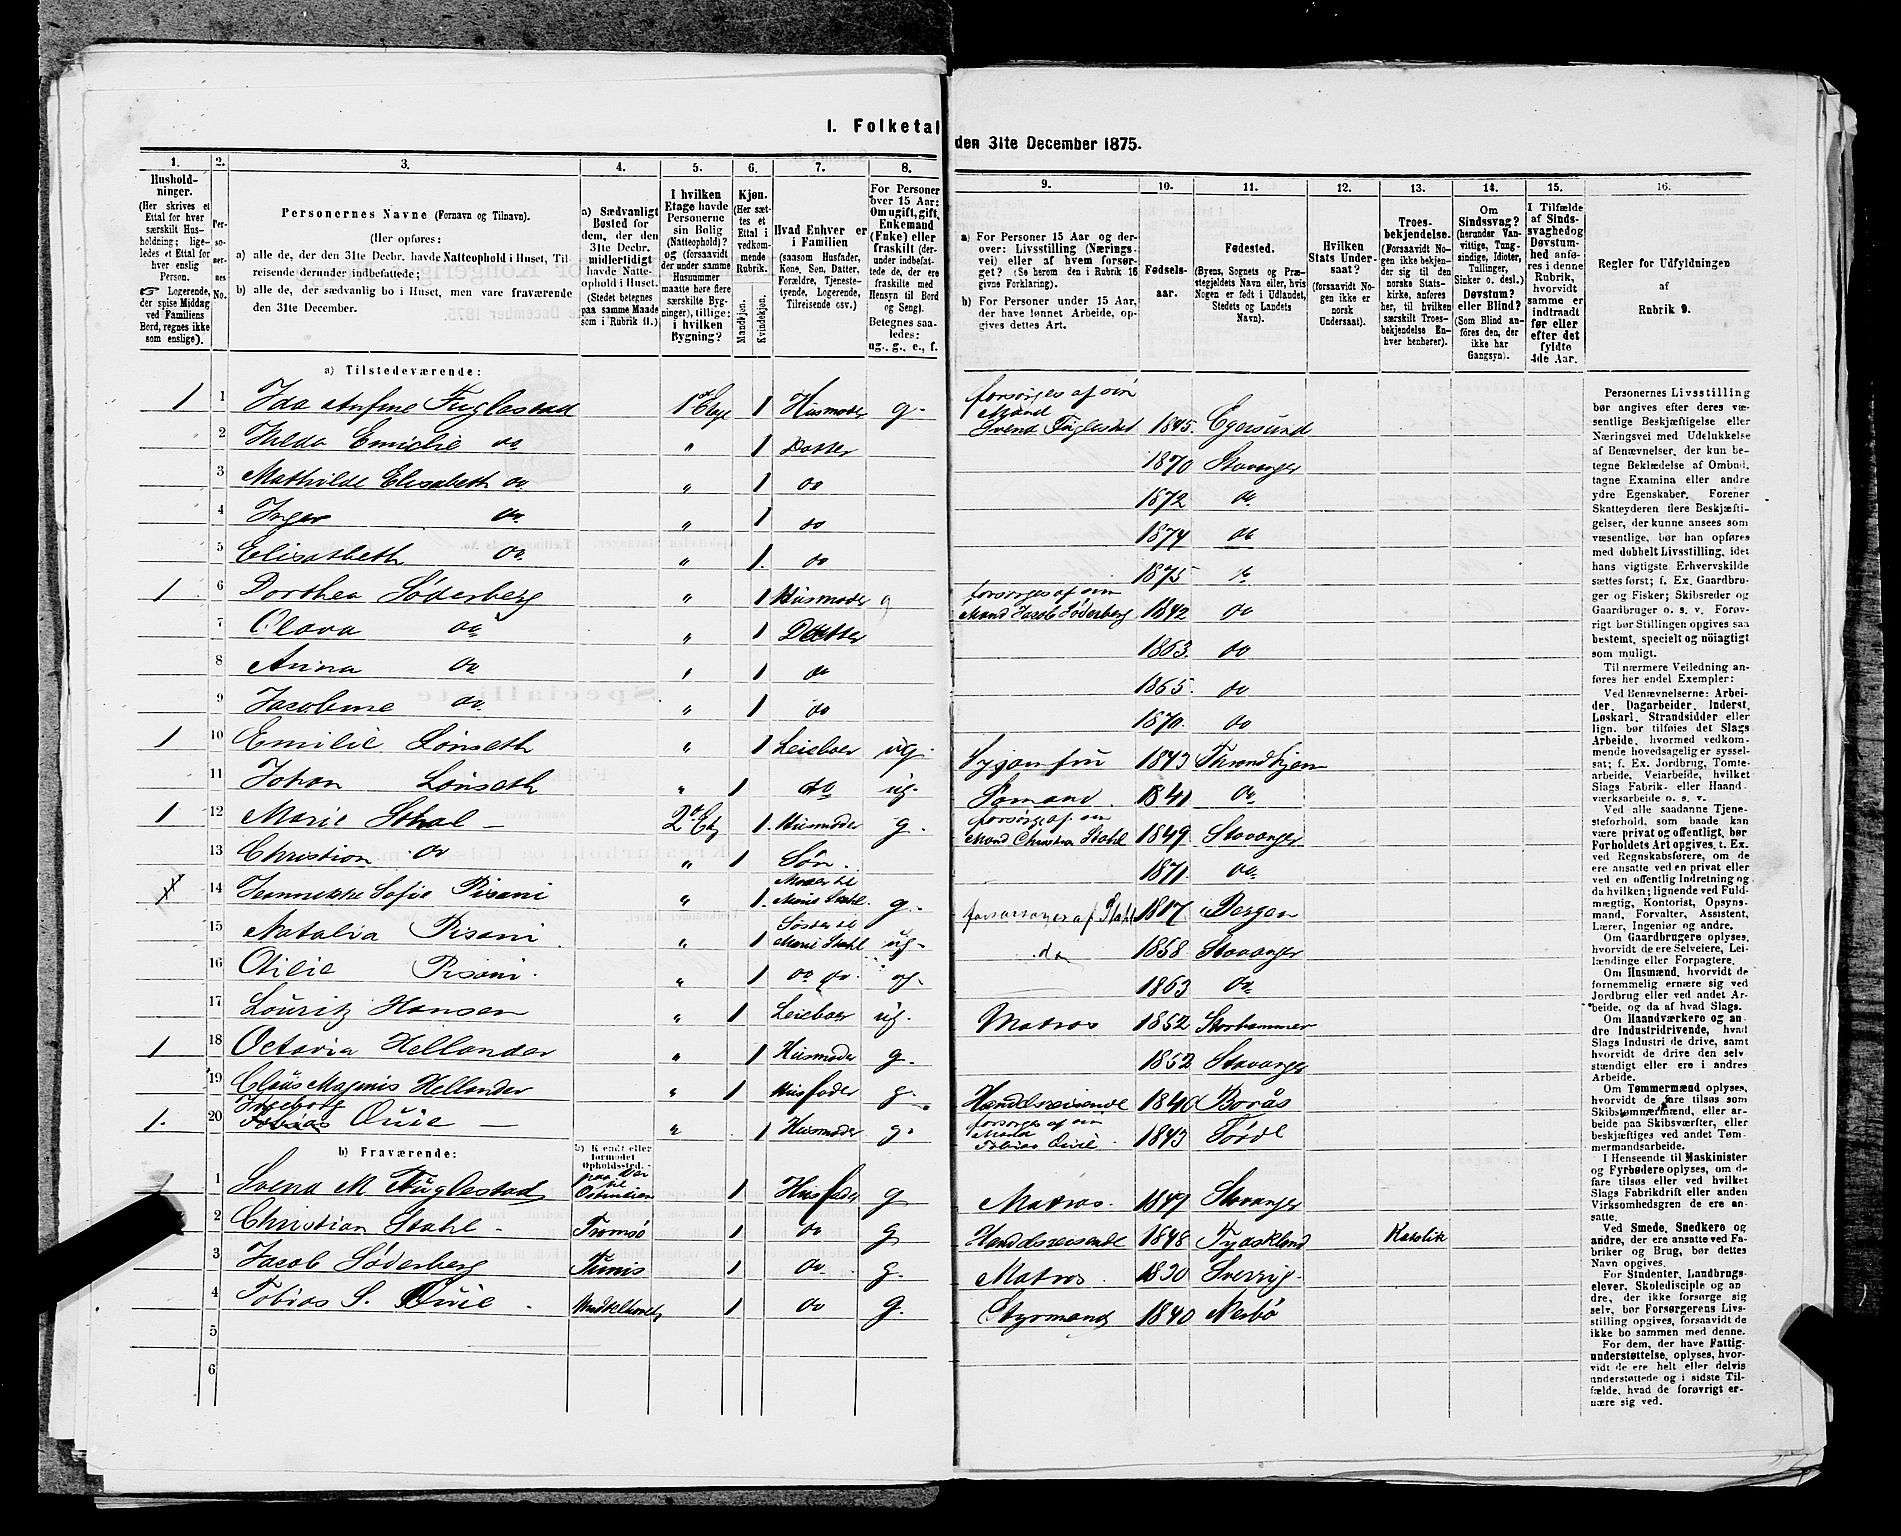 I. Folketal
den 31te December 1875.
1. 2. 3. 4. 5. 6. 7. 8.
9. 10. 11. 12. 13. 14. 15. 16.
Husholdninger.
(Her skrives et Ettal for hver særskilt Husholdning; ligeledes et Ettal for hver enslig Person.
☞ Logerende, der spise Middag ved Familiens Bord, regnes ikke som enslige).
Personernes No.
Personernes Navne (Fornavn og Tilnavn).
(Her opføres:
a) alle de, der den 31te Decbr. havde Natteophold i Huset, Tilreisende derunder indbefattede;
b) alle de, der sædvanlig bo i Huset, men vare fraværende den 31te December.
a) Sædvanligt Bosted for dem, der den 31te Decbr. midlertidigt havde Natteophold i Huset. (Stedet betegnes paa samme Maade som i Rubrik 11.)
I hvilken Etage havde Personerne sin Bolig (Natteophold)? (og forsaavidt der under samme Husnummer maatte høre flere særskilte Bygninger), tillige: i hvilken Bygning?
Kjøn. (Her sættes et Ettal i vedkommende Rubrik.
Mandkjøn. Kvindekjøn.
Hvad Enhver er i Familien (saasom Husfader, Kone, Søn, Datter, Forældre, Tjenestetyende, Logerende, Tilreisende osv.)
For Personer over 15 Aar: Om ugift, gift, Enkemand (Enke) eller fraskilt (derunder indbefattede de, der ere fraskilte med Hensyn til Bord og Seng). Betegnes saaledes: ug., g., e., f.
a) For Personer 15 Aar og derover: Livsstilling (Næringsvei) eller af hvem forsørget? (Se herom den i Rubrik 16 givne Forklaring).
b) For Personer under 15 Aar, der have lønnet Arbeide, opgives dettes Art.
Fødselsaar.
Fødested.
(Byens, Sognets og Præstegjeldets Navn eller, hvis Nogen er født i Udlandet, Stedets og Landets Navn).
Hvilken Stats Undersaat? (forsaavidt Nogen ikke er norsk Undersaat).
Troesbekjendelse. (Forsaavidt Nogen ikke bekjender sig til den norske Statskirke, anføres her, til hvilken særskilt Troesbekjendelse Enhver henhører).
Om Sindssvag? (herunder Vanvittige, Tungsindige, Idioter, Tullinger, Sinker o. desl.) Døvstum? eller Blind? (Som Blind anføres den, der ikke har Gangsyn).
I Tilfælde af Sindssvaghed og Døvstumhed anføres i denne Rubrik, hvorvidt samme er indtraadt før eller efter det fyldte 4de Aar.
Regler for Udfyldningen
af
Rubrik 9.
a) Tilstedeværende:
1 1 Ida Anfine Fuglestad 1ste Etage 1 Husmoder g. forsørges af sin Mand Svend Fuglestad 1845. Egersund
2 Hilda Emielie do " 1 Datter 1870 Stavanger
3 Mathilde Elisabeth do " 1 do 1872 do
4 Inger do " 1 do 1874 do
5 Elisabeth do " 1. do 1875 do
1 6 Dorthea Søderberg " 1 Husmoder g forsørges af sin Mand Jacob Søderberg 1842 do
7 Olava do " 1 Datter 1863. do
8 Anna do " 1 do 1865. do
9 Jacobine do " 1 do 1870. do
1 10 Emilie Lønseth " 1 Leieboer ug. Syjomfru 1843 Throndhjem
11 Johan Lønseth " 1 do ug. Sømand. 1841 do
1 12 Marie Stahl 2 Etg 1. Husmoder g. forsørges af sin Mand Christian Stahl 1849 Stavanger
13 Christian do " 1 Søn. 1871. do
14 Jennikke Sofie Pisani " 1. Moder til Marie Stahl g. forsørges af Stahl 1817 Bergen
15 Natalia Pisani. " 1 Søster til Marie Stahl ug. do 1858 Stavanger
16 Otilie Pisani. " 1 do do. ug. 1863 do
17 Louritz Hansen " 1 Leieboer ug. Matros 1852 Storhammer
1 18 Octavia Hellander " 1 Husmoder g. 1852 Stavanger
19 Claus Magnus Hellander " 1 Husfader g. Handelsreisende 1840 Borås
1. 20 Ingeborg Tobias Qvie " 1 Husmoder g. forsørges af sin Mand Tobias Qvie. 1843 Førde
b) Fraværende:
b) Kjendt eller formodet Opholdssted.
1 Svend M Fuglestad paa Reise til Ostindien 1 Husfader g Matros. 1847 Stavanger
2 Christian Stahl. Tromsø 1 do g Handelsreisende 1848 Tydskland Katolik
3 Jacob Søderberg Thunis 1 do g. Matros. 1830 Sverrig.
4 Tobias S. Qvie. Middelhavet 1 do g. Styrmand 1840 Nerbø
5
6
Personernes Livsstilling bør angives efter deres væsentlige Beskjæftigelse eller Næringsvei med Udelukkelse af Benævnelser, der kun betegne Beklædelse af Ombud, tagne Examina eller andre ydre Egenskaber. Forener Skatteyderen flere Beskjæftigelser, der kunne ansees som væsentlige, bør han opføres med dobbelt Livsstilling, idet hans vigtigste Erhvervskilde sættes først; f. Ex. Gaardbruger og Fisker; Skibsreder og Gaardbruger o. s. v. Forøvrigt bør Stillingen opgives saa bestemt, specielt og nöiagtigt som muligt.
Til nærmere Veiledning anføres her endel Exempler:
Ved Benævnelserne: Arbeider, Dagarbeider, Inderst, Løskarl, Strandsidder eller lign. bør tilføies det Slags Arbeide, hvormed vedkommende hovedsagelig er sysselsat; f. Ex. Jordbrug, Tomtearbeide, Veiarbeide, hvilket Slags Fabrik- eller Haandværksarbeide o. s. v.
Ved alle saadanne Tjenesteforhold, som baade kan være privat og offentligt, bør Forholdets Art opgives, t. Ex. ved Regnskabsførere, om de ere ansatte ved en privat eller ved en offentlig Indretning og da hvilken; lignende ved Fuldmægtig, Kontorist, Opsynsmand, Forvalter, Assistent, Lærer, Ingeniør og andre.
Om Gaardbrugere oplyses, hvorvidt de ere Selveiere, Leilændinge eller Forpagtere.
Om Husmænd, hvorvidt de fornemmelig ernære sig ved Jordbrug eller ved andet Arbeide, og da af hvad Slags.
Om Haandværkere og andre Industridrivende, hvad Slags Industri de drive, samt hvorvidt de drive den selvstændigt eller ere i andres Arbeide.
Om Tømmermænd oplyses, hvorvidt de fare tilsøs som Skibstømmermænd, eller arbeide paa Skibsværfter, eller beskjæftiges ved andet Tømmermandsarbeide.
I Henseende til Maskinister og Fyrbødere oplyses, om de fare tilsøs eller ved hvilket Fabrikdrift eller anden Virksomhedsgren de ere ansatte.
Ved Smede, Snedkere og andre, der ere ansatte ved Fabriker og Brug, bør dettes Navn opgives.
For Studenter, Landbrugselever, Skoledisciple og andre, der ikke forsørge sig selv, bør Forsørgerens Livsstilling opgives, forsaavidt de ikke bo sammen med denne.
For dem, der have Fattigunderstøttelse, oplyses, hvorvidt de ere helt eller delvis understøttede og i sidste Tilfælde, hvad de forøvrigt ernære sig ved.